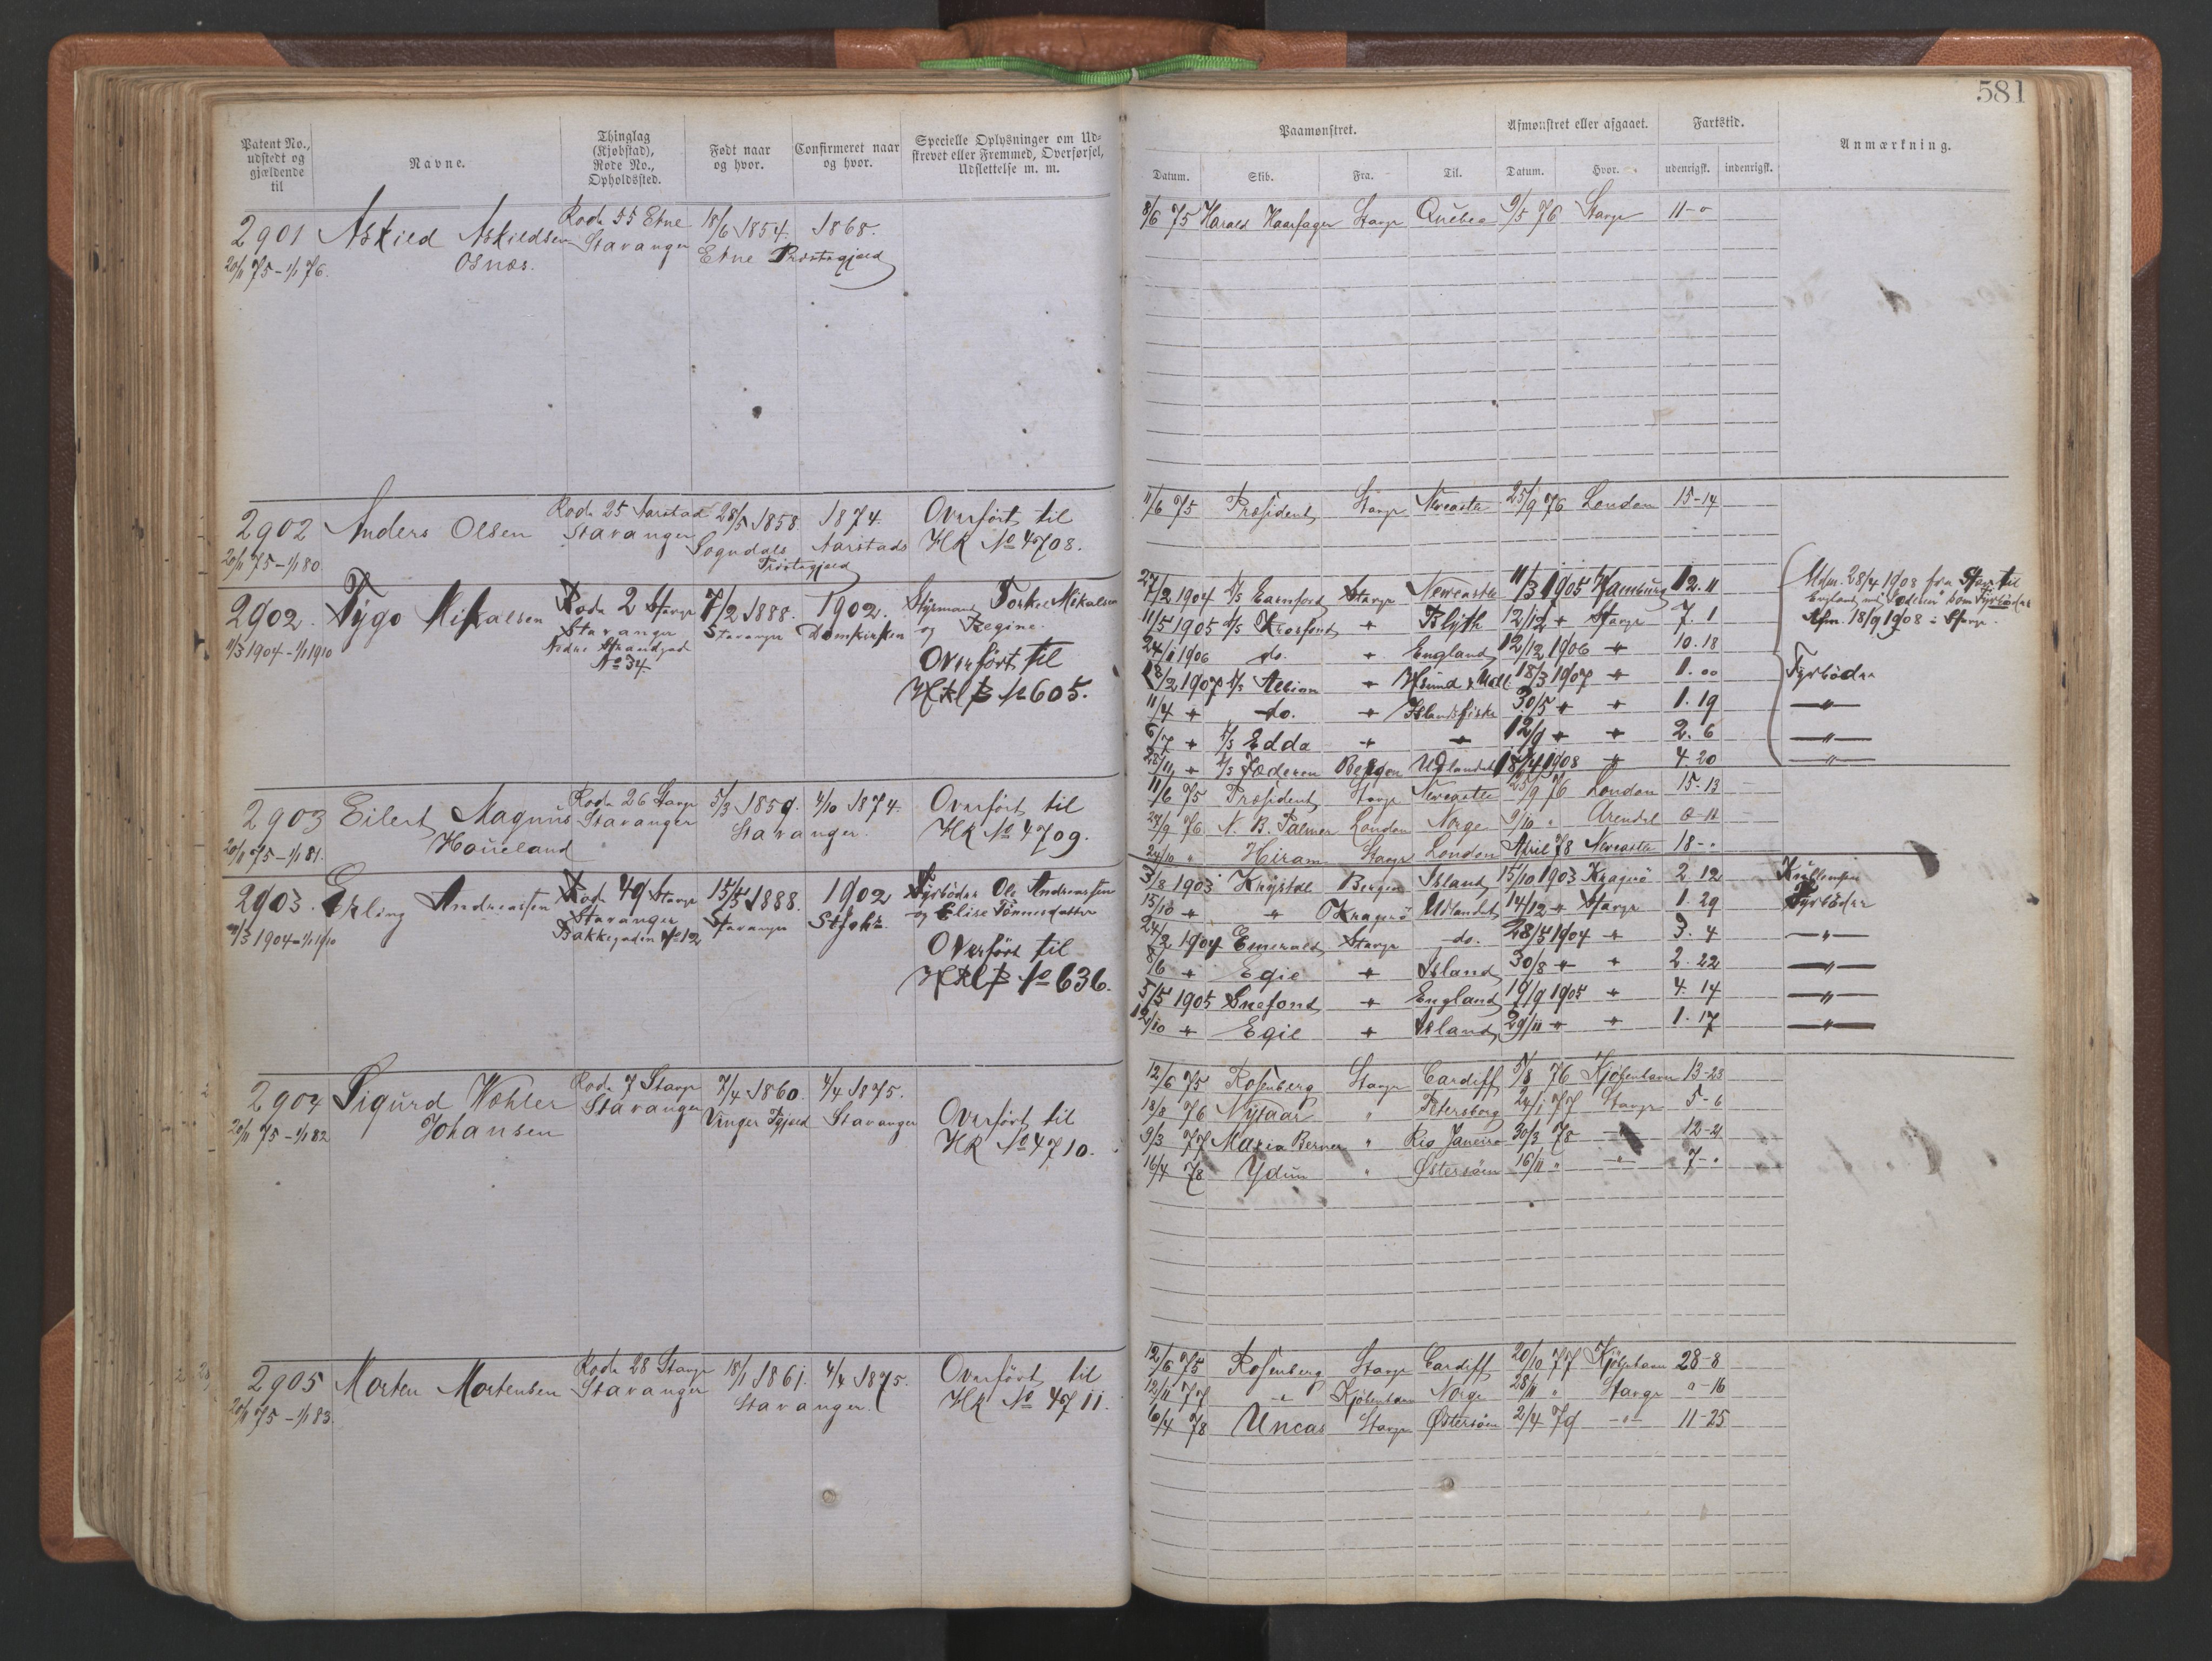 581
Patent No., udstedt og gjældende til
Navne.
Thinglag (Kjøbstad), Rode No., Opholdssted.
Født naar og hvor.
Confirmeret naar og hvor.
Specielle Oplysninger om Udskrevet eller Fremmed, Overførsel, Udslettelse m. m.
Paamønstret.
Afmønstret eller afgaaet.
Fartstid.
Anmærkning.
Datum. Skib. Fra. Til. Datum. Hvor. udenrigsk. indenrigsk.
2901 Askild Askildsen Rode 55 Etne 18/6 1854. 1868.
Osnæs. Stavanger Etne Præstegjeld
20/11 75 - 1/1 76.
8/6 75 Harald Haarfager Stavgr Quebec 9/5 76 Stavgr 11-0
2902 Anders Olsen Rode 25 Aarstad 28/5 1858 1874. Overført til
Stavanger Sogndals Aarstads HR No 4708.
20/11 75 - 1/1 80 Præstegjeld
11/6 75 Præsident Stavgr Newcastle 25/9 76 London 15-14
2902. Tygo Mikalsen Rode 2 Stavgr 7/2 1888. 1902. Styrmand Torkel Mikalsen
Stavanger Stavanger Domkirken og Regine.
1/3 1904 - 1/1 1910 Nedre Strandgad
No 34. Overført til
HRLB No 605.
27/2 1904 D/S Earnford Stavgr Newcastle 11/3 1905 Hamburg 12.11
11/5 1905 D/S Krosfond " Blyth 12/12 " Stavgr 7.1
24/1 1906 do. " England 12/12 1906 " 10.18
18/2 1907 D/S Albion " Hsund & Udl 18/3 1907 " 1.00 Fyrbøder
11/4 " do. " Islandsfiske 30/5 " " 1.19 — " —
6/7 " D/S Edda " " 12/9 " " 2.6 — " —
28/11 " D/S Jæderen Bergen Udlandet 18/4 1908 " 4 20 — " —
Mdm. 28/4 1908 fra Stav. til
England med "Jæderen" som Fyrbøder
Afm. 18/9 1908 i Stavgr.
2903 Eilert Magnus Rode 26 Stavgr 5/3 1859. 4/10 1874. Overført til
Houeland Stavanger Stavanger. HR No 4709.
20/11 75 - 1/1 81.
11/6 75 Præsident Stavgr Newcastle 25/9 76 London 15-13
27/9 76 N. B. Palmer London Norge 9/10 " Arendal 0-11
24/10 " Hiram Stavgr London April 78 Newcastle 18-"
2903. Erling Andreassen Rode 49 Stavgr 15/5 1888. 1902 Fyrbøder Ole Andreassen
Stavanger Stavanger St Joh. og Elise Tønnesdatter
1/3 1904 - 1/1 1910 Bakkegaden No 12
Overført til
HRLB No 636.
3/8 1903 Krystal Bergen Island 15/10 1903 Kragerø 2 12
15/10 " " Kragerø Udlandet 14/12 " Stavgr 1.29 Fyrbøder
24/2 1904 Esmerald Stavgr do. 28/5 1904 " 3.4 — " —
8/6 " Egil " Island 30/8 " " 2.22 — " —
5/5 1905 Snefond " England 19/9 1905 " 4.14 — " —
12/10 " Egil " Island 29/11 " " 1.17 — " —
2904 Sigurd Wøhler Rode 7 Stavgr 7/4 1860. 4/4 1875.
Johansen Stavanger Vinger Pgjeld Stavanger Overført til
20/11 75 - 1/1 82 HR No 4710.
12/6 75 Rosenberg Stavgr Cardiff 5/8 76 Kjøbenhavn 13-23
18/8 76 Nytaar " Petersborg 24/1 77 Stavgr 5-6
9/3 77 Maria Berner " Rio Janeiro 30/3 78 " 12-21
16/4 78 Ydun " Østersøen 16/11 " " 7-"
2905 Morten Mortensen Rode 28 Stavgr 18/1 1861. 4/4 1875. Overført til
Stavanger Stavanger. HR No 4711.
20/11 75 - 1/1 83.
12/6 75 Rosenberg Stavgr Cardiff 20/10 77 Kjøbenhavn 28-8
12/11 77 " Kjøbenhavn Norge 28/11 " Stavgr "-16
6/4 78 Uncas Stavgr Østersøen 2/4 79 -"- 11-25